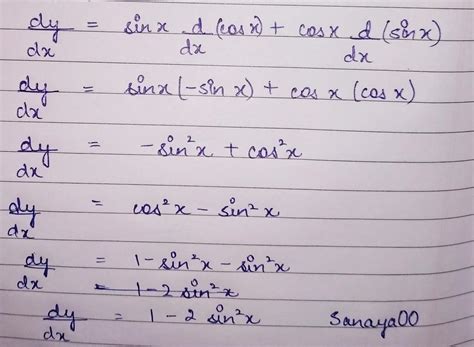 dy/dx = sinx d/dx (cosx) + cosx d/dx (sinx)
dy/dx = sinx (-sin x) + cos x (cosx)
dy/dx = -sin²x + cos²x
dy/dx = cos²x - sin²x
dy/dx = 1 - sin²x - sin²x
= 1 - 2 sin²x
dy/dx = 1 - 2 sin²x Sanaya00